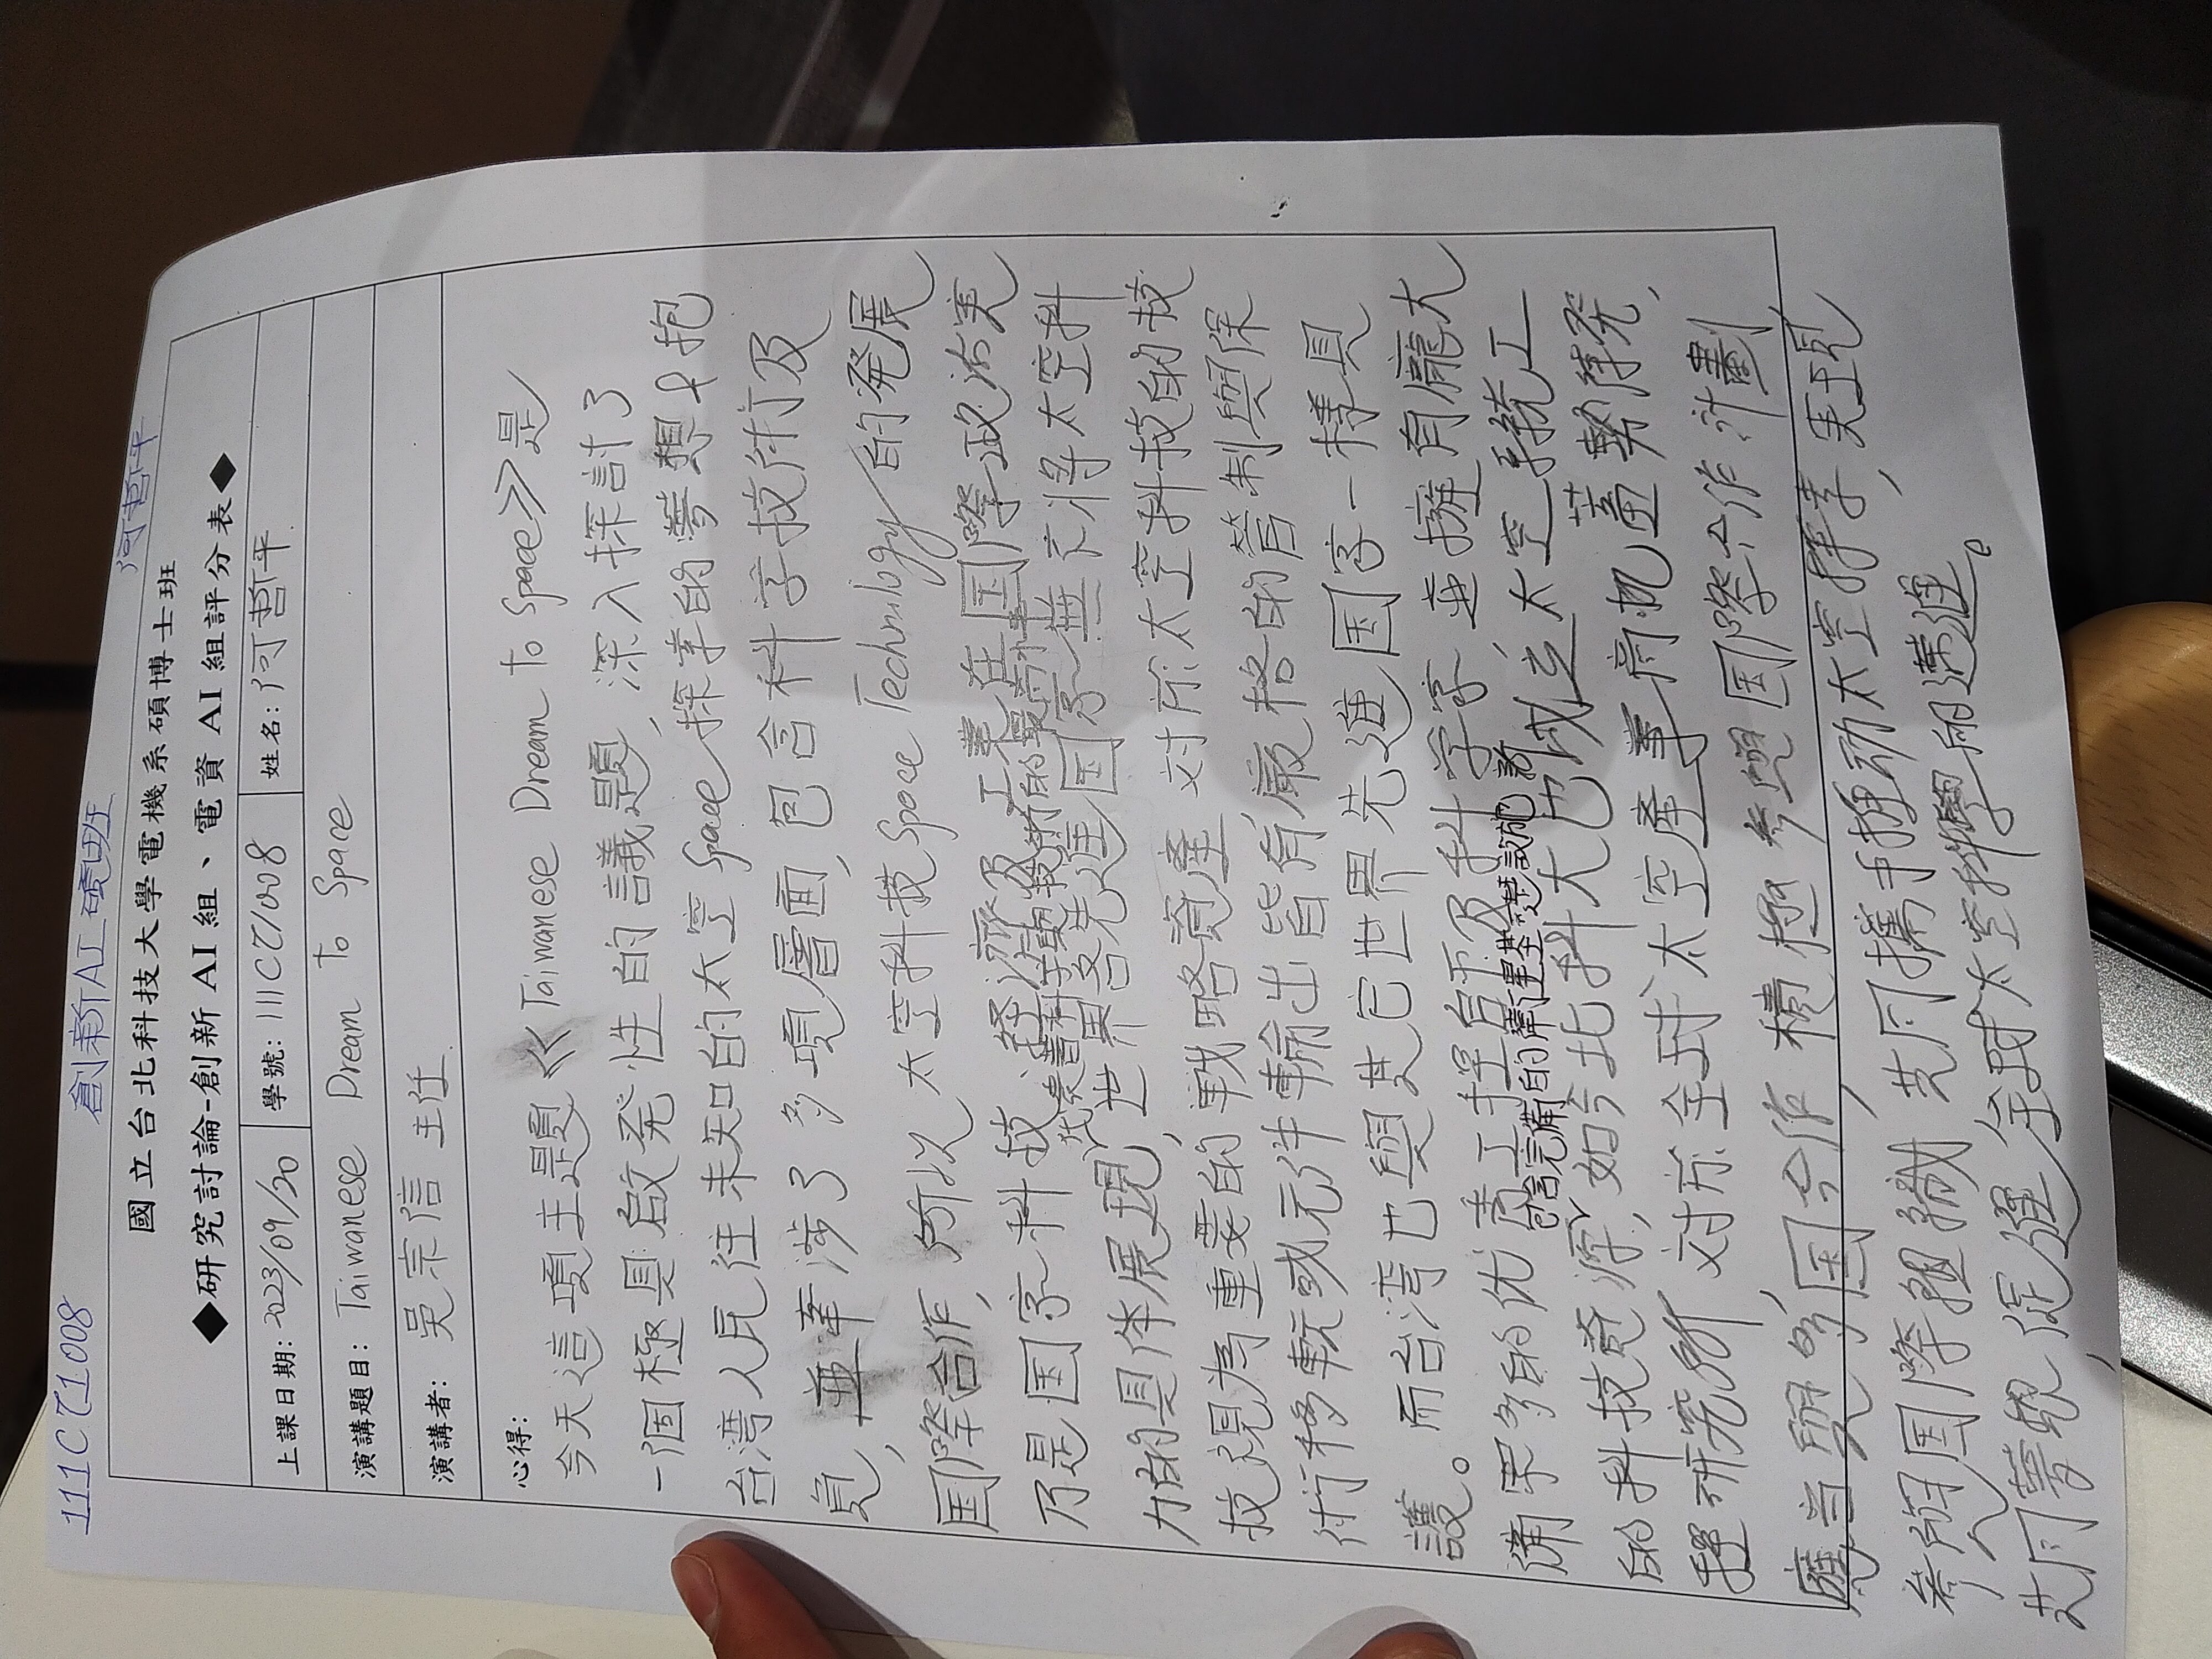 111C71008 創新AI碩班 何哲平
國立台北科技大學電機系碩博士班
◆研究討論-創新 AI 組、電資 AI 組評分表◆
上課日期: 2023/09/20 學號: 111C71008 姓名: 何哲平
演講題目: Taiwanese Dream to Space
演講者: 吳宗信 主任
心得:
今天這項主題《Taiwanese Dream to Space》是
一個極具啟發性的議題,深入探討了
台湾人民往未知的太空Space探索的夢想&抱
負,並牽涉了多項層面,包含科学技術及
国際合作,所以太空科技Space Technology的発展
乃是国家科技、経濟及工業在国際政治実
代表著科学與技術的最高水平
力的具体展現,世界各先進国家無不將太空科
技視為重要的戦略資產,対於太空科技的技
術移転或元件輸出皆有嚴格的管制與保
護。而台湾也與其它世界先進国家一樣具
備眾多的优秀工程師及科学家,並擁有龐大
包含完備的衛星基礎設施
的科技資源,如今北科大也成立太空系統工
程研究所,対於全球太空產業商机蓄勢待発,
應当與多国合作,積極参與国際合作計劃,
参與国際組織共同攜手推动太空探索,実現
共同夢想,促進全球太空科學的邁進。